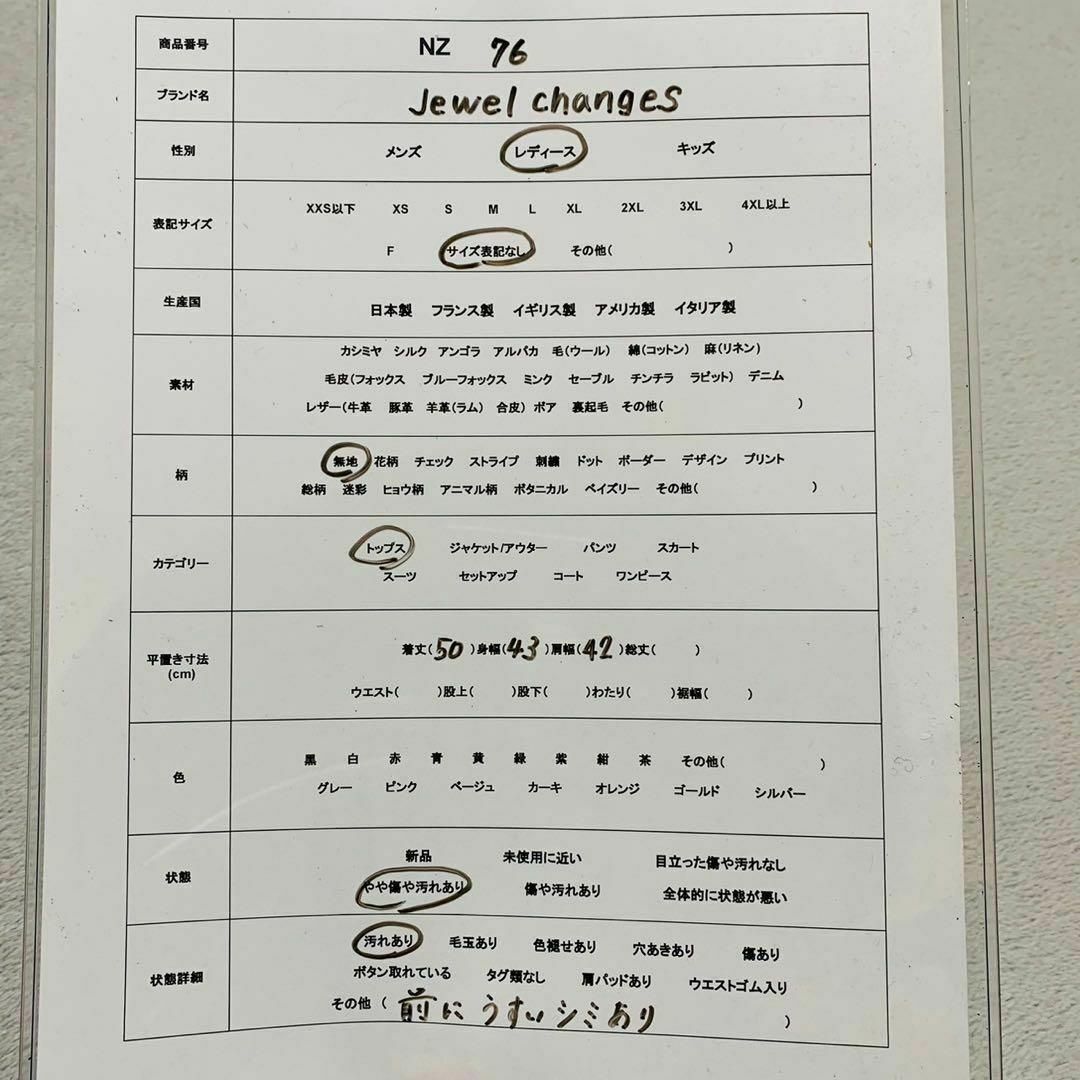 商品番号 NZ 76
ブランド名 Jewel changes
性別 メンズ レディース キッズ
表記サイズ
XXS以下 XS S M L XL 2XL 3XL 4XL以上
F サイズ表記なし その他( )
生産国 日本製 フランス製 イギリス製 アメリカ製 イタリア製
素材
カシミヤ シルク アンゴラ アルパカ 毛(ウール) 綿(コットン) 麻(リネン)
毛皮(フォックス ブルーフォックス ミンク セーブル チンチラ ラビット) デニム
レザー(牛革 豚革 羊革(ラム) 合皮) ボア 裏起毛 その他( )
柄
無地 花柄 チェック ストライプ 刺繍 ドット ボーダー デザイン プリント
総柄 迷彩 ヒョウ柄 アニマル柄 ボタニカル ペイズリー その他( )
カテゴリー
トップス ジャケット/アウター パンツ スカート
スーツ セットアップ コート ワンピース
平置き寸法
(cm)
着丈(50)身幅(43)肩幅(42)総丈( )
ウエスト( )股上( )股下( )わたり( )裾幅( )
色
黒 白 赤 青 黄 緑 紫 紺 茶 その他( )
グレー ピンク ベージュ カーキ オレンジ ゴールド シルバー
状態
新品 未使用に近い 目立った傷や汚れなし
やや傷や汚れあり 傷や汚れあり 全体的に状態が悪い
状態詳細
汚れあり 毛玉あり 色褪せあり 穴あきあり 傷あり
ボタン取れている タグ類なし 肩パッドあり ウエストゴム入り
その他 ( 前に うすいシミあり )